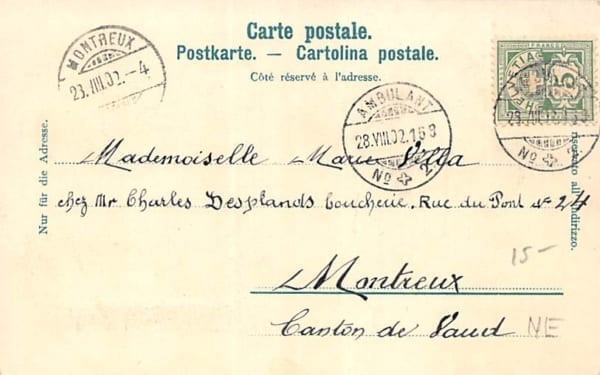 Carte postale.
Postkarte. — Cartolina postale.
Côté réservé à l'adresse.
Nur für die Adresse.
riservato all'indirizzo.
MONTREUX
23.VIII.02.-4
AMBULANT
28.VIII.02.158
No 2
HELVETIA
FRANCO
5
No
Mademoiselle Marie Villa
chez Mr Charles Desplands boucherie, Rue du Pont No 24
Montreux
Canton de Vaud
15-
NE